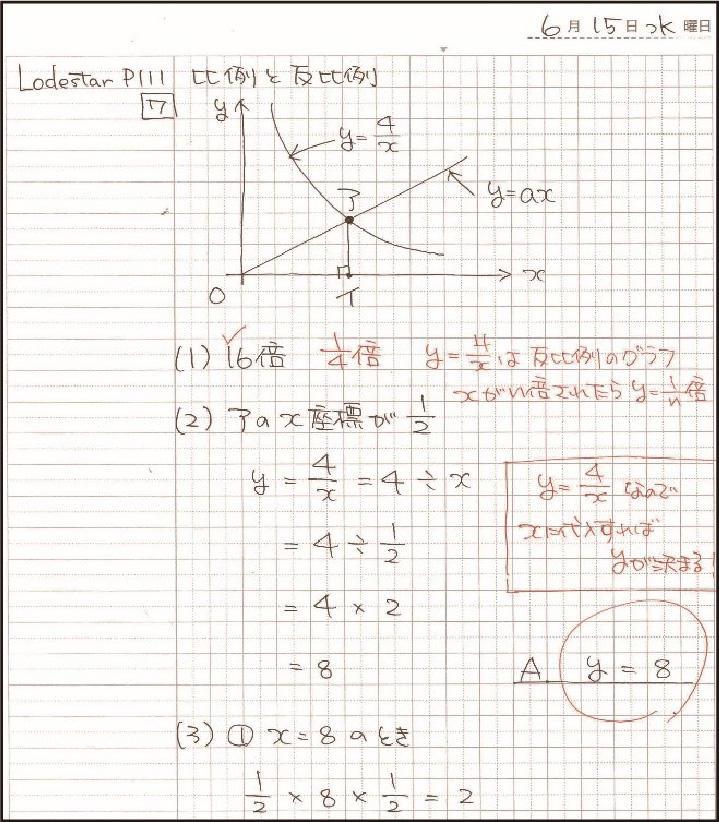 6月15日水曜日
Lodestar P111 比例と反比例
7
y
y = 4/x
ア
y = ax
O
イ
x
(1) 16倍 1/4倍 y = 4/x は反比例のグラフ
xがn倍されたら y = 1/n倍
(2) アのx座標が 1/2
y = 4/x = 4 ÷ x
= 4 ÷ 1/2
= 4 × 2
= 8
y = 4/x なので
xに代入すれば
yが決まる!
A y = 8
(3) ① x = 8 のとき
1/2 × 8 × 1/2 = 2